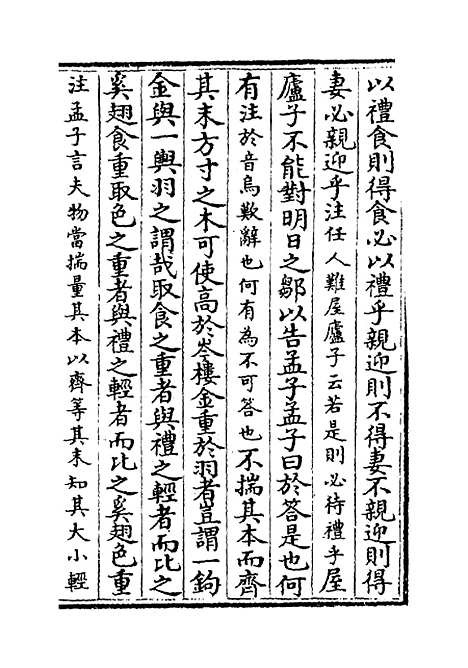 以禮食則得食必以禮乎親迎則不得妻不親迎則得
妻必親迎乎注任人難屋廬子云若是則必待禮乎屋
廬子不能對明日之鄒以告孟子孟子曰於答是也何
有注於音烏歎辭也何有為不可答也不揣其本而齊
其末方寸之木可使高於岑樓金重於羽者豈謂一鉤
金與一輿羽之謂哉取食之重者與禮之輕者而比之
奚翅食重取色之重者與禮之輕者而比之奚翅色重
注孟子言夫物當揣量其本以齊等其末知其大小輕